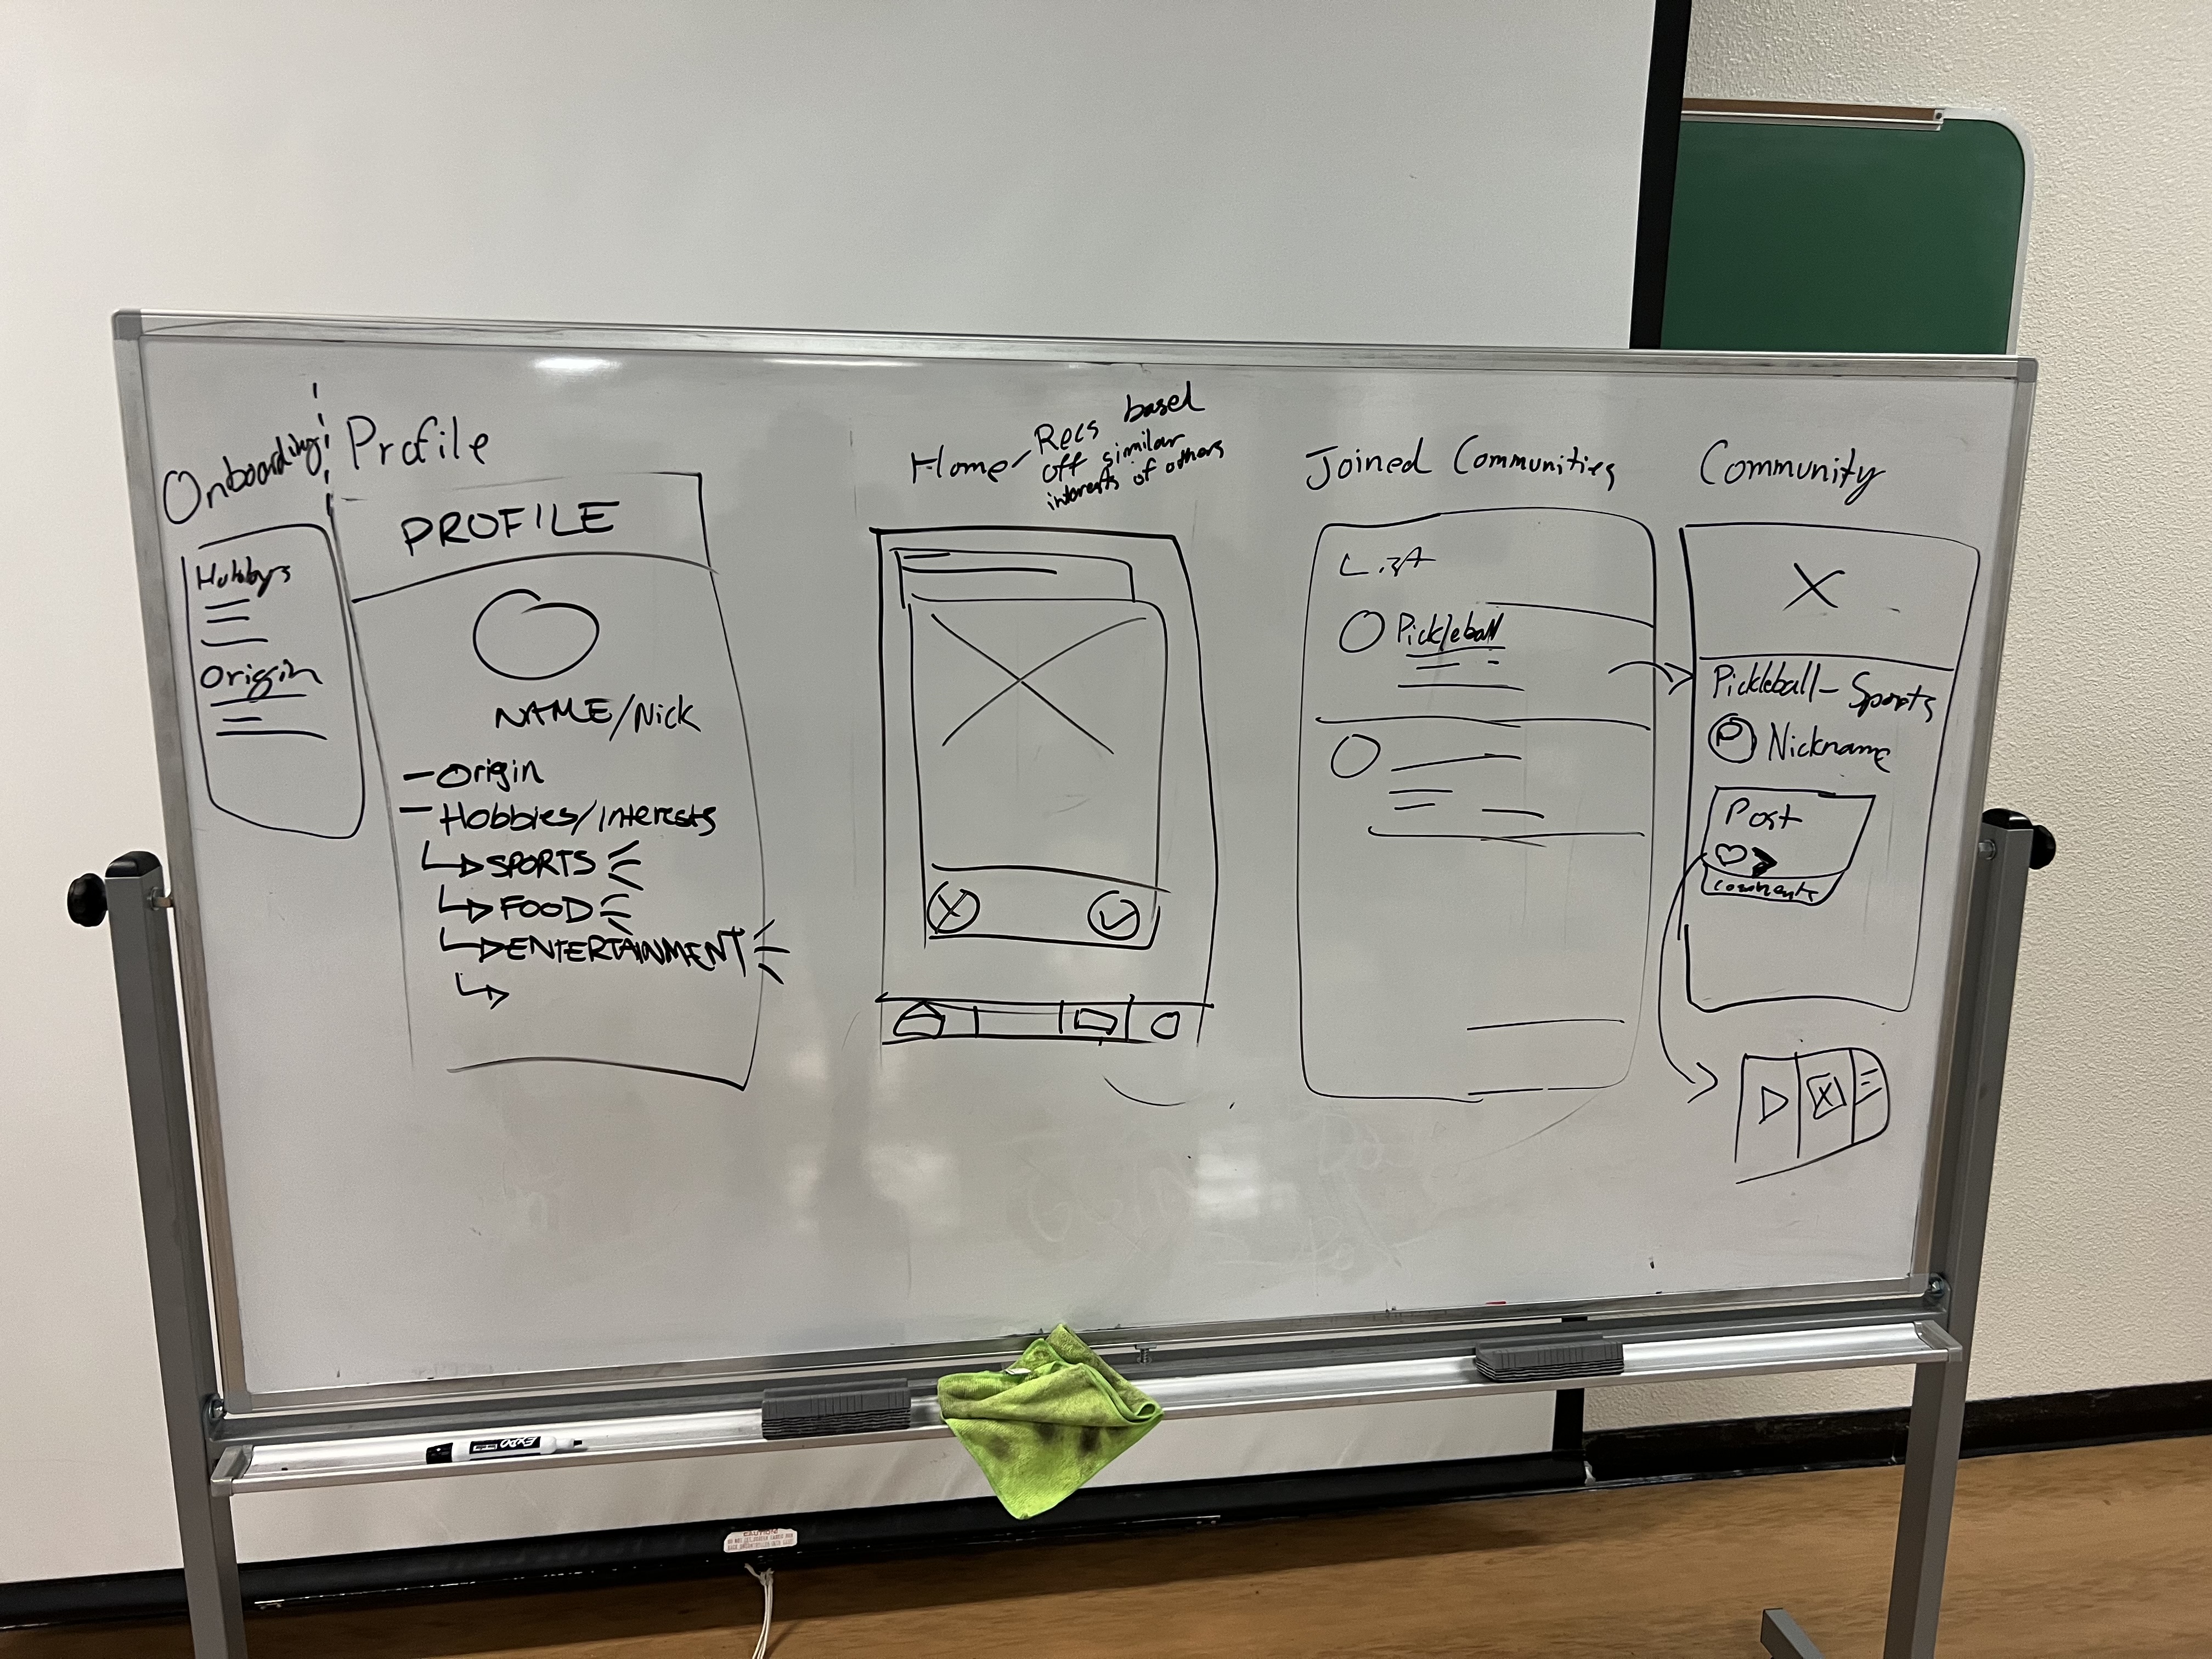 Onboarding
Hobbys
Origin
Profile
PROFILE
NAME/Nick
- Origin
- Hobbies/Interests
SPORTS
FOOD
ENTERTAINMENT
Home - Recs based
off similar
interests of others
Joined Communities
List
Pickleball
Community
X
Pickleball - Sports
P Nickname
Post
Comments
EXPO
CAUTION